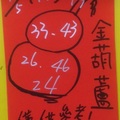 33.43
26.46
24
金葫蘆
僅供參考